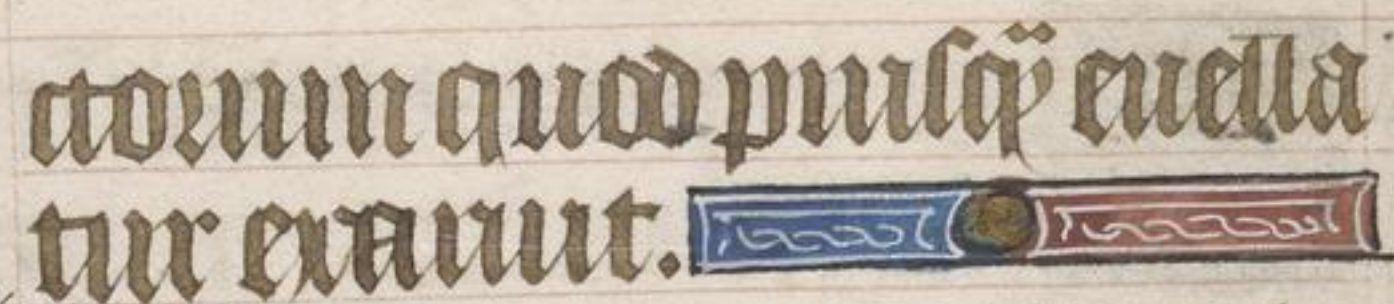 ctorum quod priuſqᷓ euella
tur exaruit.